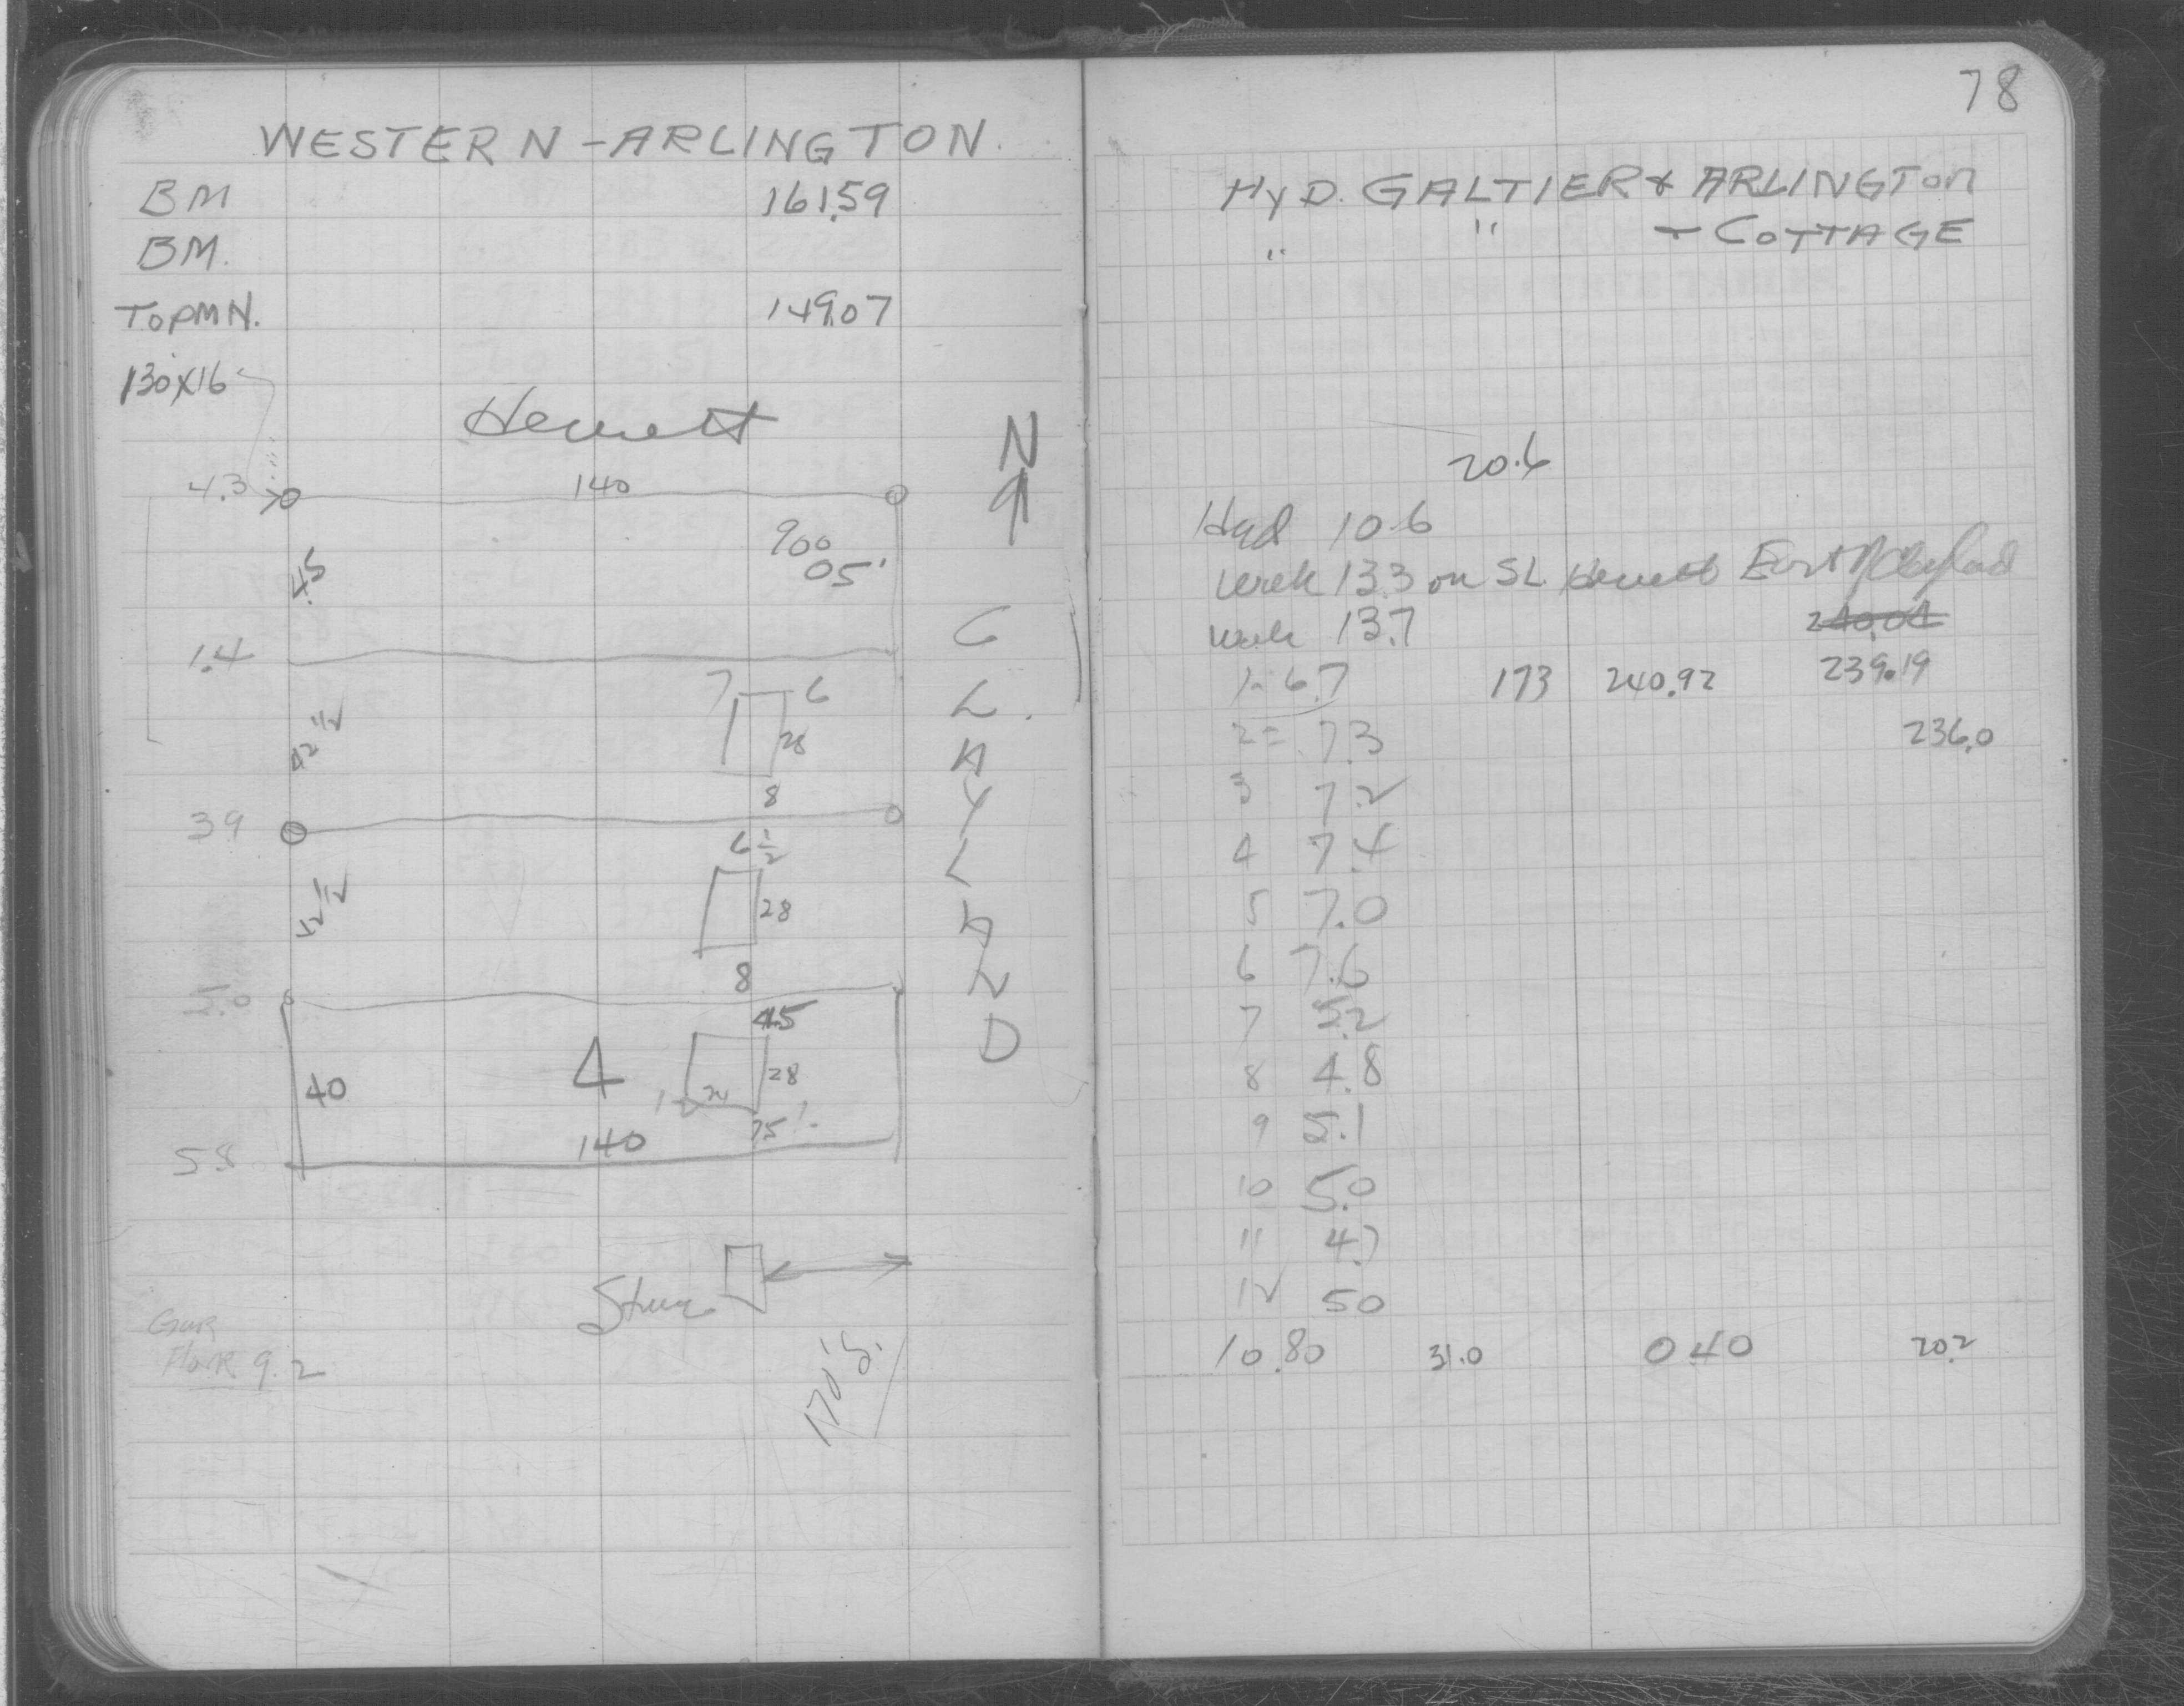 WESTERN-ARLINGTON.
BM 161.59
BM.
TOPMN. 149.07
130X16
Hewett
N
4.3 140
900
05'
45
1.4
7 6
42 1/2 28
8
39
6 1/2
42 1/2 28
8
5.0
45
40 4 28
140 75'
5.8
CLAYLAND
170'S.
Gar
Floor 9.2
78
HyD. GALTIER & ARLINGTON
" " + COTTAGE
20.6
Hyd 10.6
13.3 on SL Hewett East
13.7 240.04
1= 6.7 173 240.92 239.19
2= 7.3 236.0
3 7.2
4 7.4
5 7.0
6 7.6
7 5.2
8 4.8
9 5.1
10 5.0
11 4.7
12 50
10.80 31.0 0.40 20.2